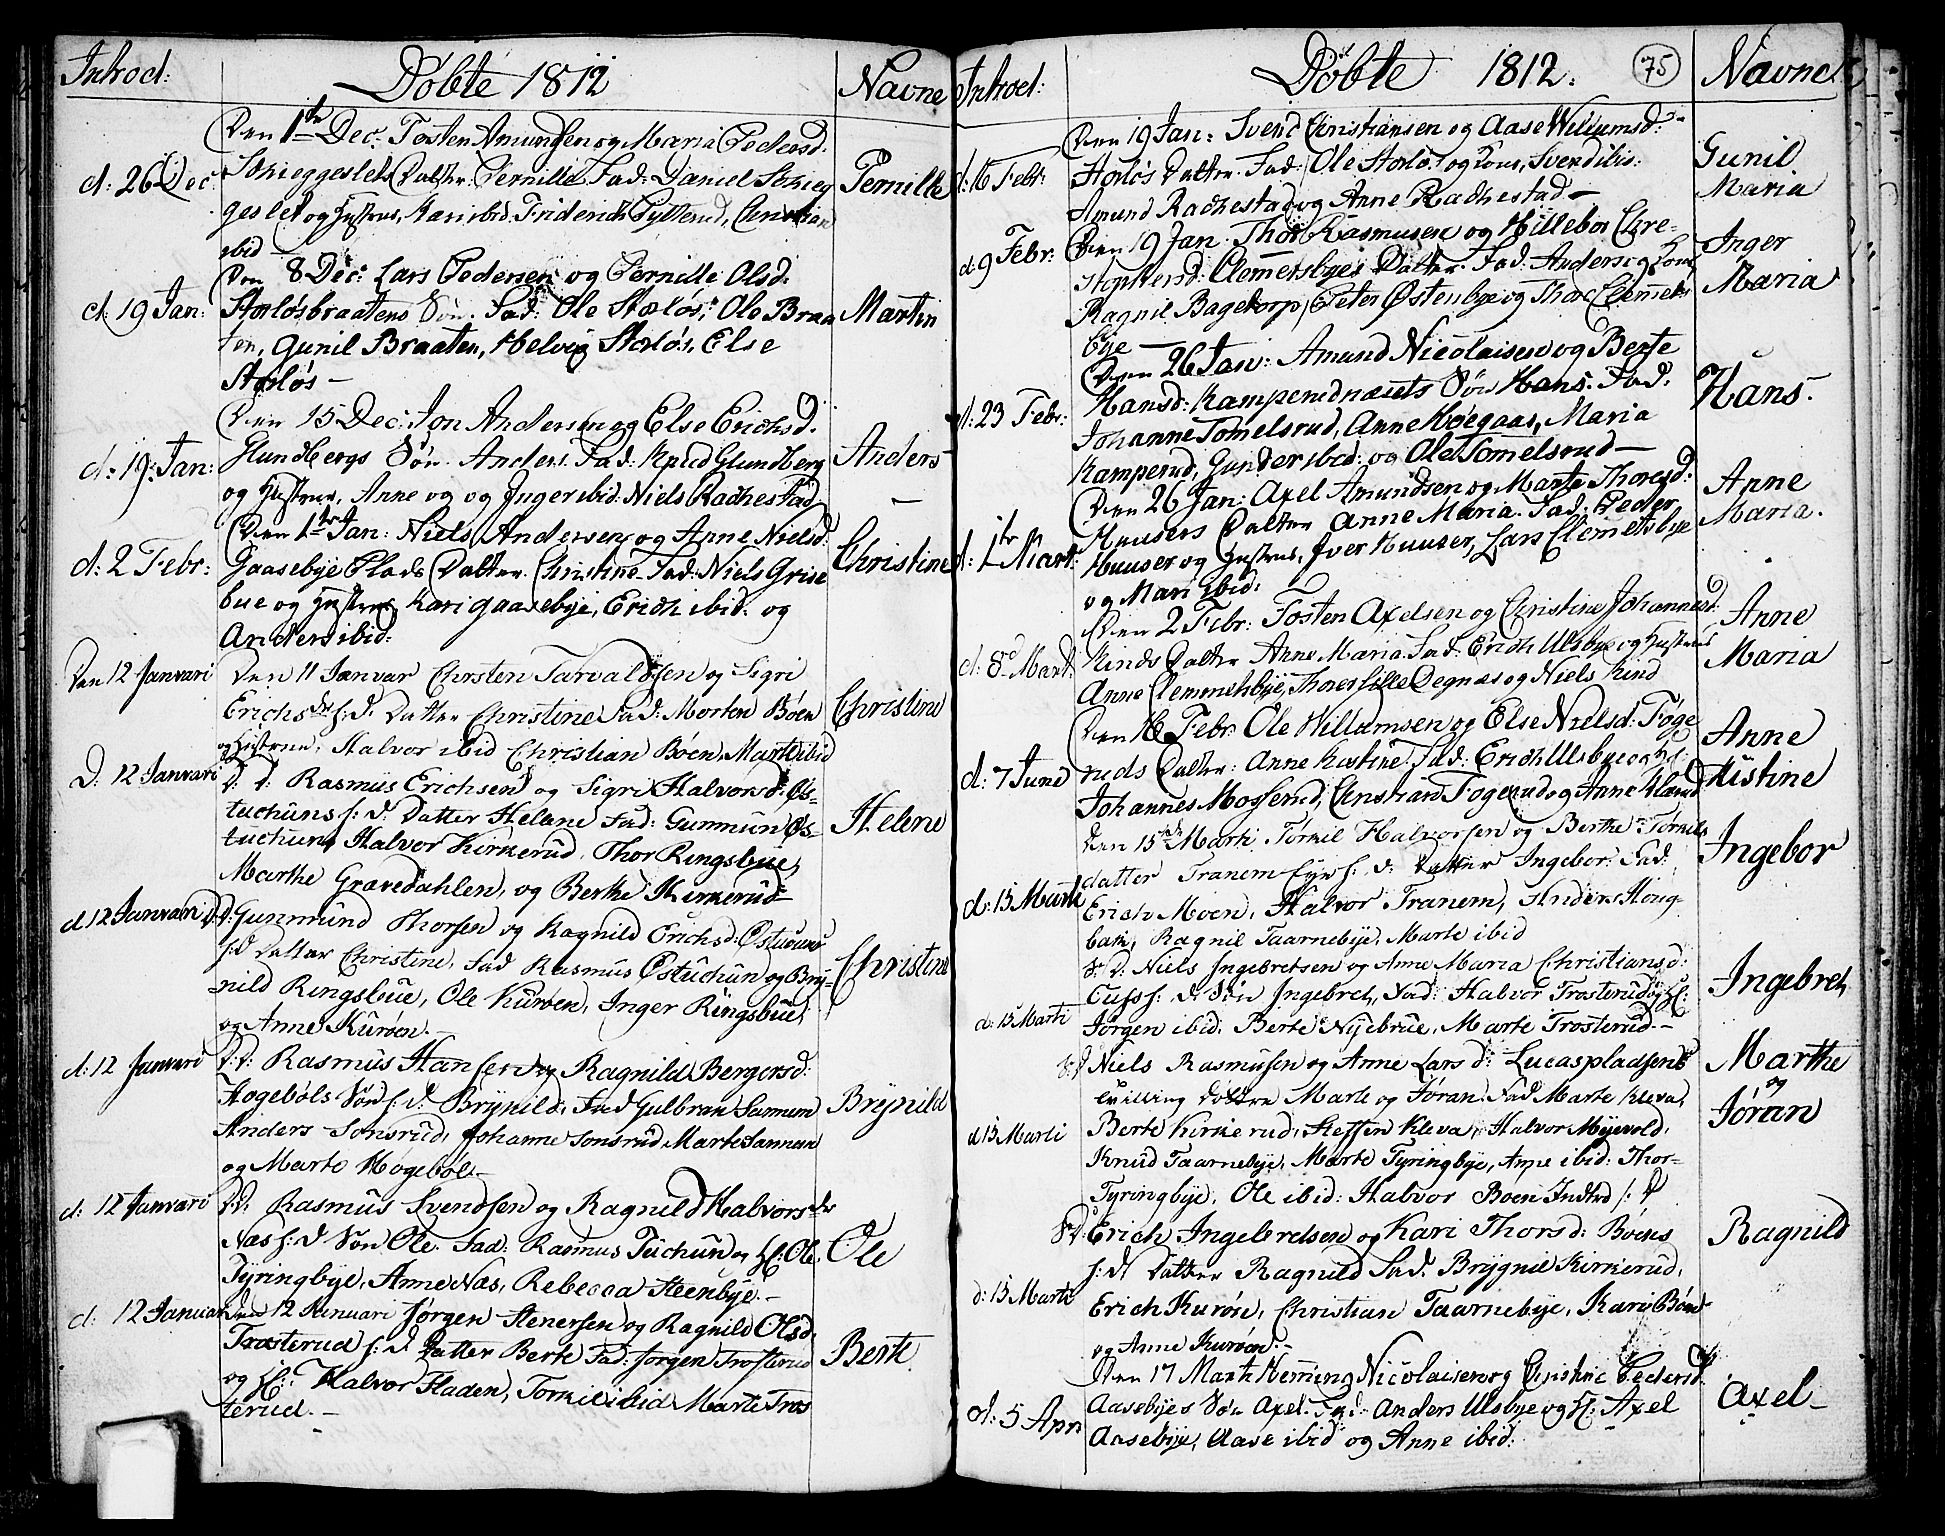 Introd:
Döbte 1812
Navne
Den 1te Dec: Tosten Amundsen og Maria Pedersd:
d: 26 Dec:
Schieggeslets Datter Pernille Fad: Daniel Schieg
Pernille
geslet og Hustrue, Kari ibid. Friderich Christian
ibid
Den 8 Dec: Lars Pedersen og Pernille Olsd.
d: 19 Jan:
Storløsbraatens Søn. Fad: Ole Storløs, Ole Braa
Martin
ten, Gunil Braaten, Helvig Storløs, Else
Storløs —
Den 15 Dec: Jon Andersen og Else Erichsd.
d: 19: Jan:
Glundbergs Søn Anders Fad: Knud Glundberg
Anders
og Hustrue, Anne og og Inger ibid: Niels Radhestad
Den 1te Jan: Niels Andersen og Anne Nielsd:
d: 2 Febr:
Gaasebye Plads Datter Christine Fad: Niels Grise
Christine
bue og Hustrue Kari Gaasebye, Erich ibid: og
Anders ibid:
Den 12 Januari
Den 11 Januar Chrsten Tarvaldsen og Sigri
Erichsdr f: d. Datter Christine Fad: Morten Böen
Christine
og Hustrue, Halvor ibid Christian Böen, Marte ibid
D. 12 Januari
D: d: Rasmus Erichsen og Sigri Halvorsd: Øs-
tuchuns f: d. Datter Helene Fad: Gunmun Øs-
Helene
tuchun, Halvor Kirkerud, Thor Ringsbue,
Marthe Gravedahlen, og Berthe Kirkerud
d 12 Januari
D: d: Gunmund Thorsen og Ragnild Erichsd: Østuchuns
f: d Datter Christine, Fad Rasmus Østuchun og Bry-
Christine
nild Ringsbue, Ole Kuröen, Inger Ringsbue,
og Anne Kuröen. —
d: 12 Januari
D: d: Rasmus Hansen og Ragnild Bergersd:
Hogebøls Søn f: d: Brynild, Fad Gulbran Sannum
Brynild
Anders Sonsrud, Johanne Sonsrud Marte Sannum
og Marte Høgebøl. —
d: 12 Januari
D: d: Rasmus Svendsen og Ragnild Halvorsdr
Næs f: d Søn Ole. Fad: Rasmus Tuchun og H: Ole
Ole
Tyringbye, Anne Næs, Rebecca Steenbye. —
d: 12 Januari
Den 12 Januari Jørgen Stenersen og Ragnild Olsd:
Trosterud f: d Datter Berte Fad: Jorgen Trosterud
Berte
og H:. Halvor Fladen, Torkil ibid Marte Tros
terud. —
Introd:
Döbte 1812.
75
Navne
Den 19 Jan: Svend Christiansen og Aase Willumsd: —
d: 16 Febr:
Storløs Datter Fad: Ole Storløs og Kone, Svend ibid:
Gunil
Maria
Amund Radhestad og Anne Radhestad —
Den 19 Jan. Thor Rasmusen og Hillebor Chre-
d 9 Febr:
stophersd: Clemetsbyes Datter. Fad: Anders og Kone
Inger
Maria
Ragnil Bagetorp, Peter Østenbye og Thore Clemets
bye —
Den 26 Jan: Amund Nicolaisen og Berte
Hansd: Kamperudnæsets Søn Hans. Fad.
Hans.
d: 23 Febr:
Johanne Tomelsrud, Anne Høegaas, Maria
Kamperud, Gunder ibid: og Ole Tomelsrud —
Den 26 Jan: Axel Amundsen og Marte Thoresd:
Anne
Maria.
d: 1te Mart:
Huusers Datter Anne Maria. Fad: Peder
Huuser og Hustrue, Iver Huuser, Lars Clemetsbye
og Mari ibid:
Den 2 Febr: Tosten Axelsen og Christine Johannesd:
d: 8de Mart:
Kinds Datter Anne Maria Fad: Erich Ulsbye og Hustrue
Anne
Maria
Anne Clemmetsbye, Degnæs og Niels Kind
Den 16 Febr: Ole Willumsen og Else Nielsd: Foge
Anne
Kistine
d: 7 June
ruds Datter: Anne Kistine Fad: Erich Ulsbye og H:
Johannes Mosserud, Christian Fogerud og Anne
Den 15de Marti Torkil Halvorsen og Berthe Torkils
datter Tranem Eye f: d: Datter Ingebor Fad:
Ingebor
d: 15 Marti
Erich Moen, Halvor Tranem, Anders Houg-
bak, Ragnil Taarnebye, Marte ibid
d: d: Niels Ingebretsen og Anne Maria Christiansd:
Tufs f: d Søn Ingebret, Fad: Halvor Trosterud og H:
Ingebret
d: 15 Marti
Jörgen ibid, Berte Nyebrue, Marte Trosterud. —
d: d Niels Rasmusen og Anne Lars d: Lucaspladsens
Marthe
og
Jöran
tvilling Döttre Marte og Jöran Fad Marte Kleva,
d 15 Marti
Berte Kirkerud, Steffen Kleva, Halvor Myevold,
Knud Taarnebye, Marte Tyringbye, Anne ibid: Thor-
Tyringbye, Ole ibid: Halvor Boen Indtrd f: d
d: Erich Ingebretsen og Kari Thorsd: Böens
Ragnild
f: d: Datter Ragnild Fad. Brygnil Kirkerud,
d: 15 Marti
Erich Kurön, Christian Taarnebye, Kari Böen
og Anne Kuröen. —
Den 17 Marti Heming Nicolaisen og Christine Pedersd.
d: 5 Apr:
Aasebyes Søn Axel. Fad: Anders Ulsbye og H: Axel
Axel —
Aasebye, Aase ibid og Anne ibid: